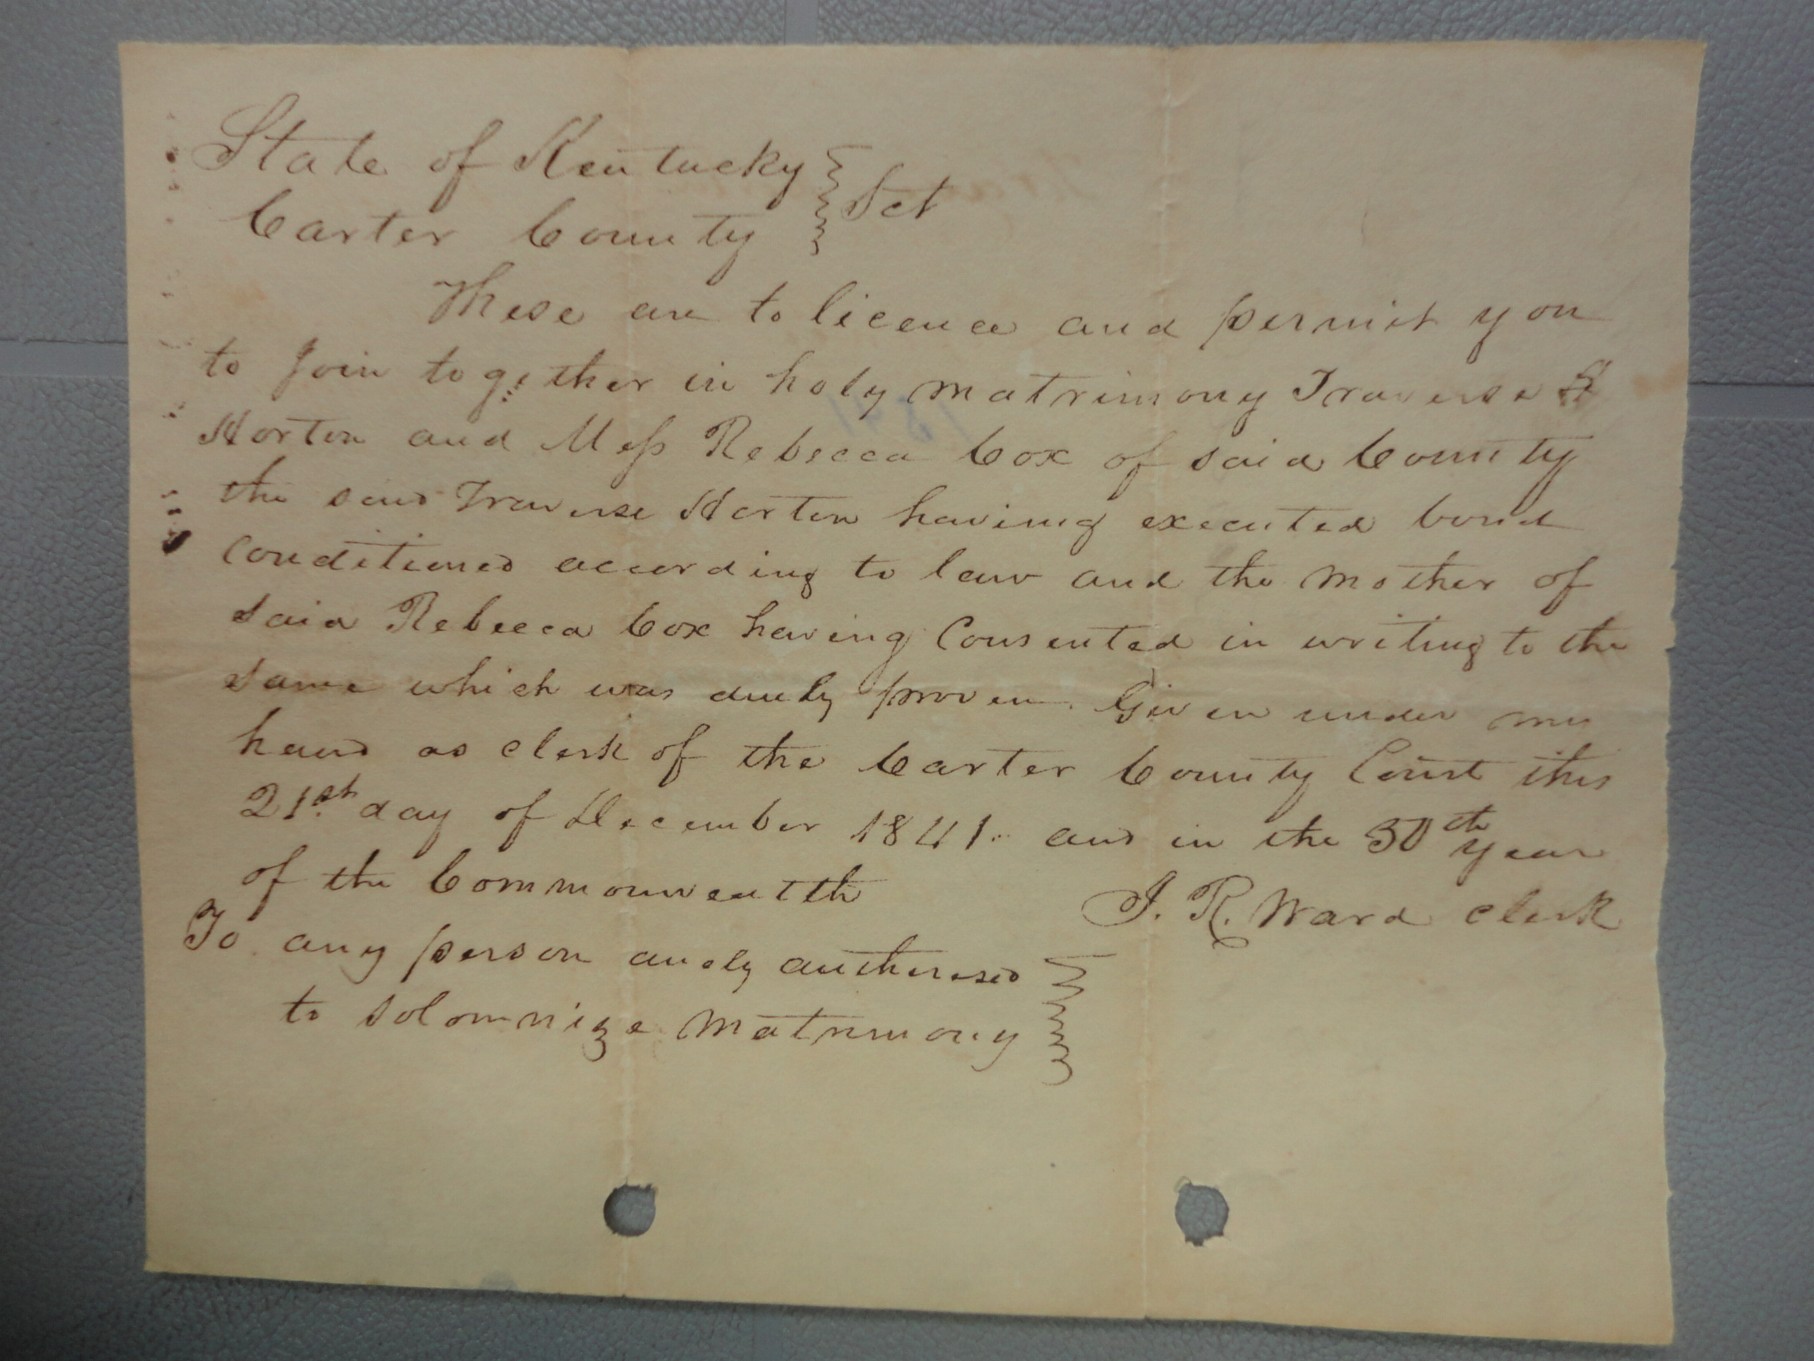 State of Kentucky
Carter County } Sct
These are to licence and permit you
to Join together in holy matrimony Traverse
Horton and Miss Rebecca Cox of said County
the said Traverse Horton having executed bond
conditioned according to law and the mother of
said Rebecca Cox having Consented in writing to the
same which was duely proven. Given under my
hand as clerk of the Carter County Court this
21st day of December 1841. and in the 50th year
of the Commonwealth
J. R. Ward clerk
To any person duely autherised
to solomnize matrimony